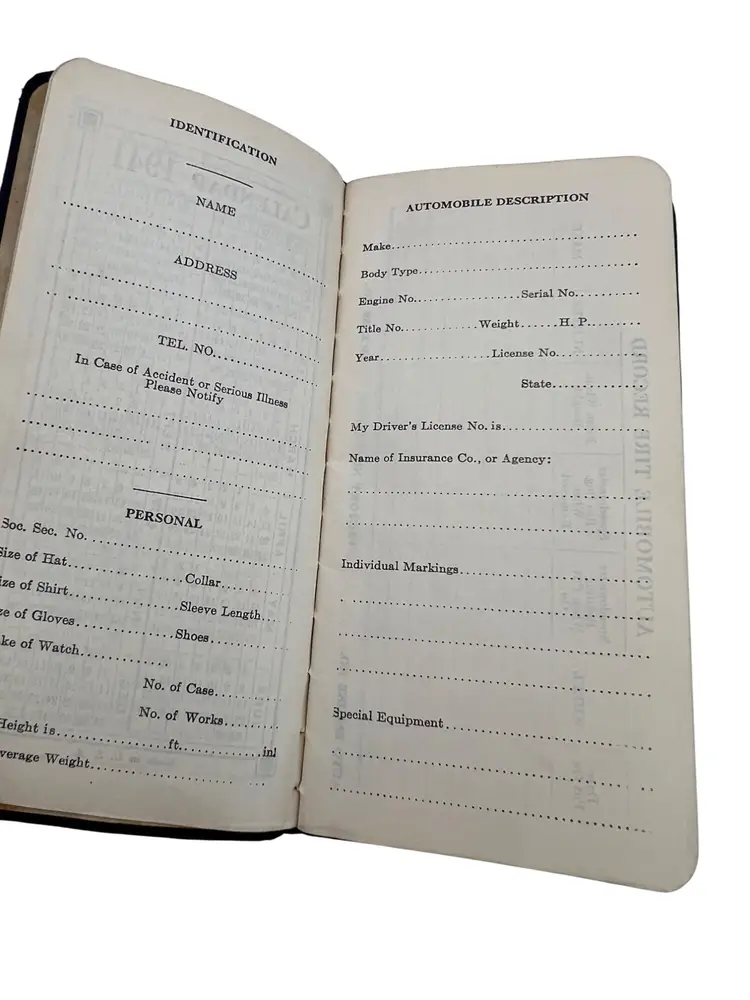 IDENTIFICATION
NAME
ADDRESS
TEL. NO.
In Case of Accident or Serious Illness
Please Notify
PERSONAL
Soc. Sec. No.
Size of Hat Collar
ize of Shirt Sleeve Length
ze of Gloves Shoes
ke of Watch
No. of Case
No. of Works
Height is ft. in
verage Weight
CALENDAR 1941
APRIL
AUTOMOBILE DESCRIPTION
Make
Body Type
Engine No. Serial No.
Title No. Weight H. P.
Year License No.
State
My Driver's License No. is
Name of Insurance Co., or Agency:
Individual Markings
Special Equipment
AUTOMOBILE TIRE RECORD